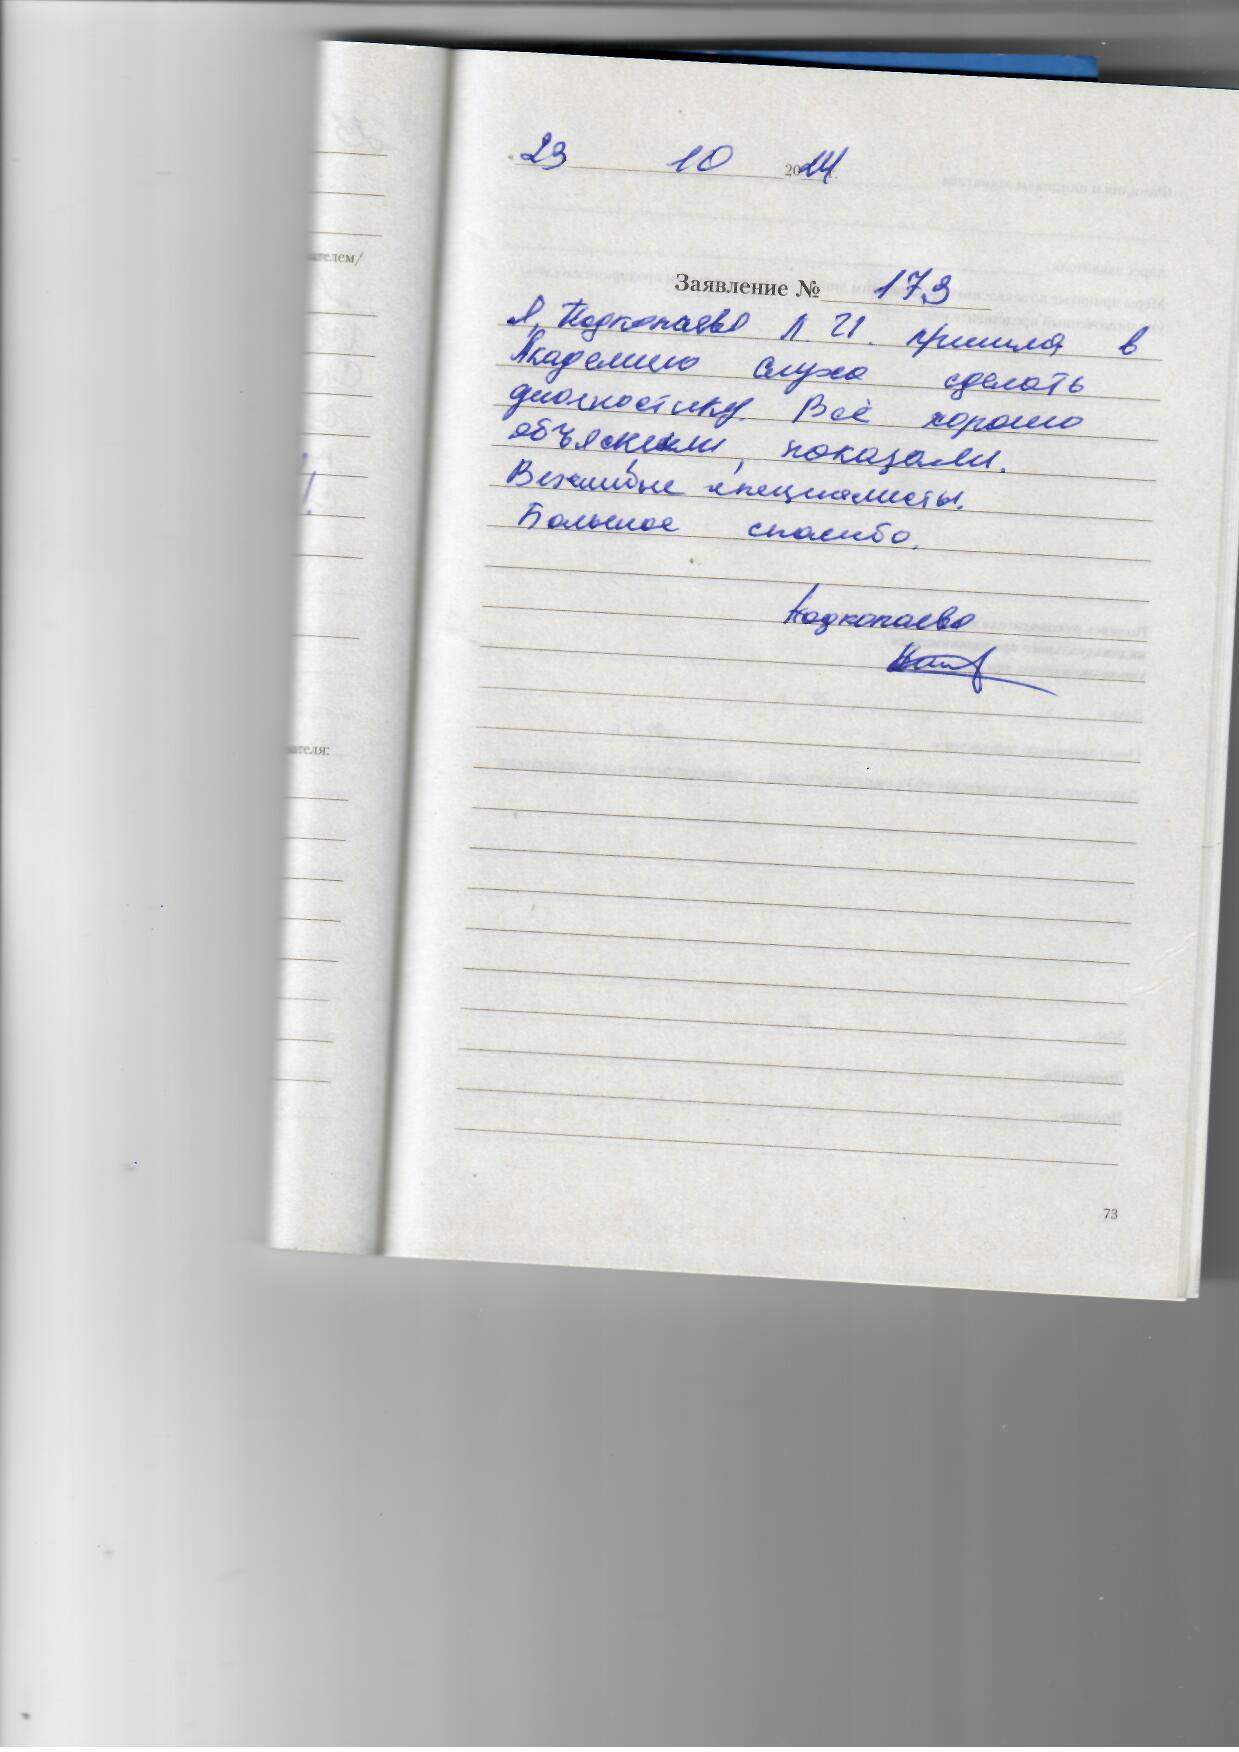 ателем/
ателя:
23 10 2024
Заявление № 173
Я, Подкопаева Л. И. пришла в
Академию слуха сделать
диагностику. Всё хорошо
объяснили, показали.
Вежливые специалисты.
Большое спасибо.
Подкопаева
73